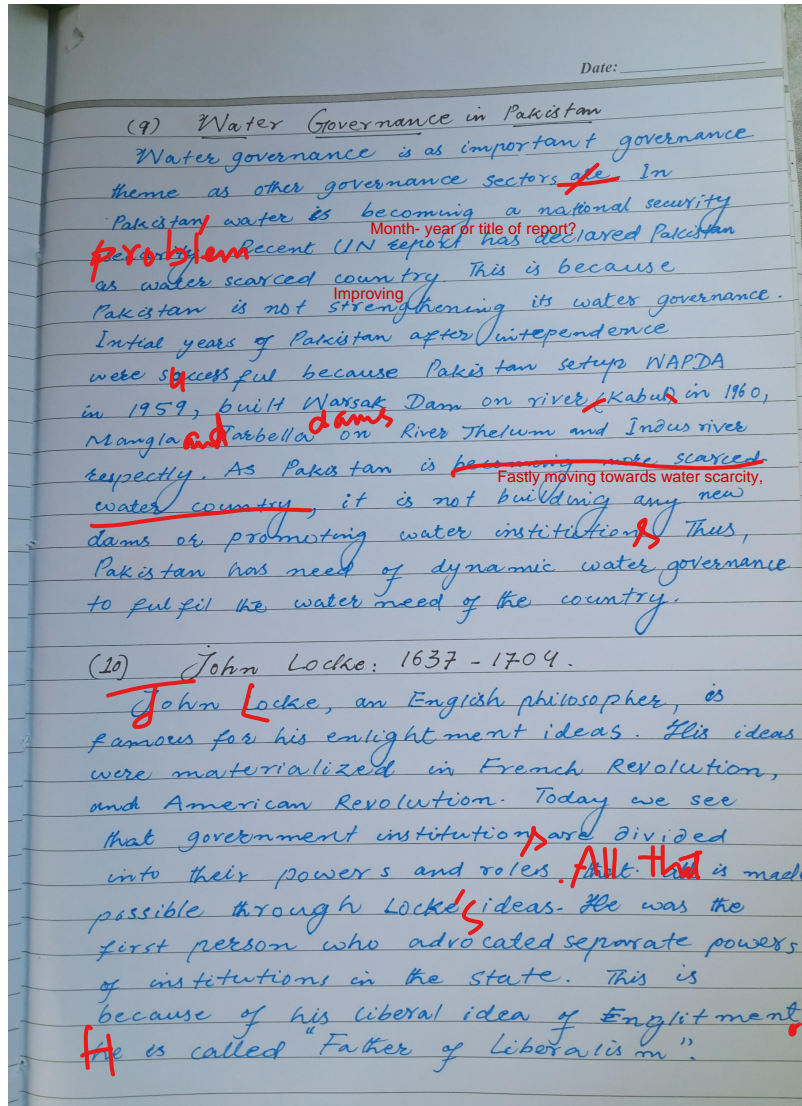 Date:
(9) Water Governance in Pakistan
Water governance is as important governance
theme as other governance sectors are. In
Pakistan, water is becoming a national security
Month- year or title of report?
problem Recent UN report has declared Pakistan
as water scarced country. This is because
Improving
Pakistan is not strengthening its water governance.
Intial years of Pakistan after intependence
were successful because Pakistan setup WAPDA
in 1959, built Warsak Dam on river (Kabul) in 1960,
dams
Mangla and Tarbella on River Jhelum and Indus river
respectly. As Pakistan is becoming more scarced
Fastly moving towards water scarcity,
water country, it is not building any new
dams or promoting water institutions Thus,
Pakistan has need of dynamic water governance
to fulfil the water need of the country.
(10) John Locke: 1637 - 1704.
John Locke, an English philosopher, is
famous for his enlightment ideas. His ideas
were materialized in French Revolution,
and American Revolution. Today we see
that government institutions are divided
into their powers and roles. All that is made
possible through Locke's ideas. He was the
first person who advocated separate powers
of institutions in the state. This is
because of his liberal idea of Englitment.
He is called "Father of Liberalism".